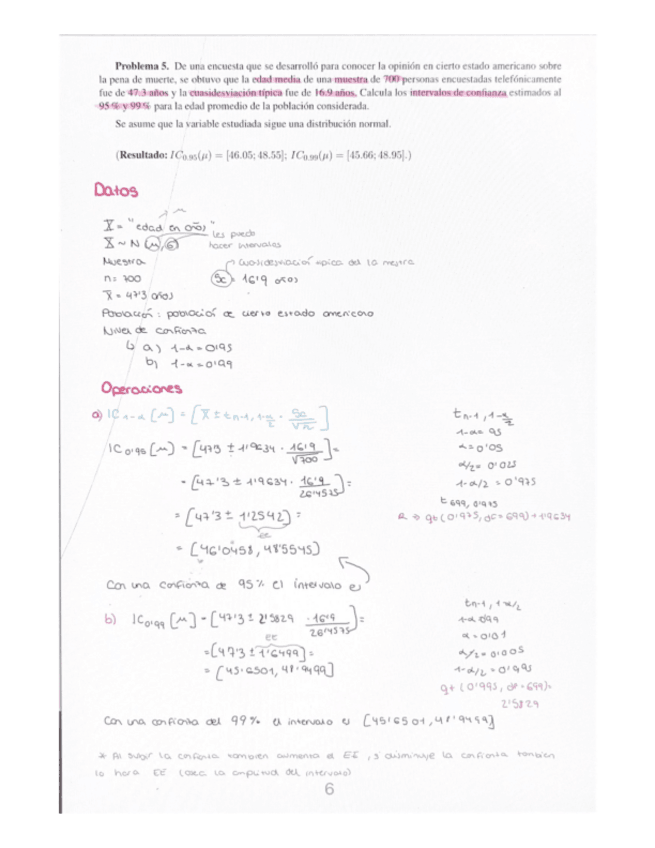 Problema 5. De una encuesta que se desarrolló para conocer la opinión en cierto estado americano sobre
la pena de muerte, se obtuvo que la edad media de una muestra de 700 personas encuestadas telefónicamente
fue de 47.3 años y la cuasidesviación típica fue de 16.9 años. Calcula los intervalos de confianza estimados al
95 % y 99 % para la edad promedio de la población considerada.
Se asume que la variable estudiada sigue una distribución normal.
(Resultado: IC0.95(μ) = [46.05; 48.55]; IC0.99(μ) = [45.66; 48.95].)
Datos
X = "edad en años"
X ~ N (μ, σ) les puedo
hacer intervalos
Muestra
cuasidesviación típica de la mestra
n = 700 Sc = 16'9 años
x̄ = 47'3 años
Población: población de cierto estado americano
Nivel de confianza
a) 1-α = 0'95
b) 1-α = 0'99
Operaciones
a) IC 1-α [μ] = [x̄ ± t n-1, 1-α/2 · Sc/√n]
IC 0'95 [μ] = [47'3 ± 1'9634 · 16'9/√700] =
= [47'3 ± 1'9634 · 16'9/26'4575] =
= [47'3 ± 1'2542] =
EE
= [46'0458, 48'5545]
Con una confianza de 95% el intervalo es
t n-1, 1-α/2
1-α = 95
α = 0'05
α/2 = 0'025
1-α/2 = 0'975
t 699, 0'975
R → qt (0'975, df = 699) = 1'9634
b) IC 0'99 [μ] = [47'3 ± 2'5829 · 16'9/26'4575] =
EE
= [47'3 ± 1'6499] =
= [45'6501, 48'9499]
t n-1, 1-α/2
1-α 0'99
α = 0'01
α/2 = 0'005
1-α/2 = 0'995
qt (0'995, df = 699) =
2'5829
Con una confianza del 99% el intervalo es [45'6501, 48'9499]
* Al subir la confianza tambien aumenta el EE, si disminuye la confianza tambien
lo hará EE (sea la amplitud del intervalo)
6